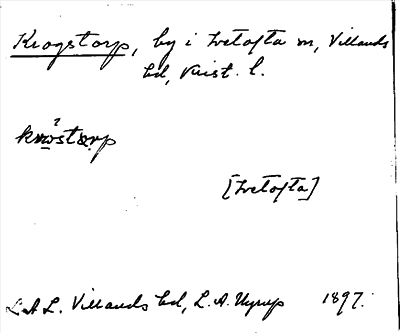 Krogstorp, by i Ivetofta sn, Villands
hd, Krist. l.
[Ivetofta]
L.A.L. Villands hd, L. A. 1897.